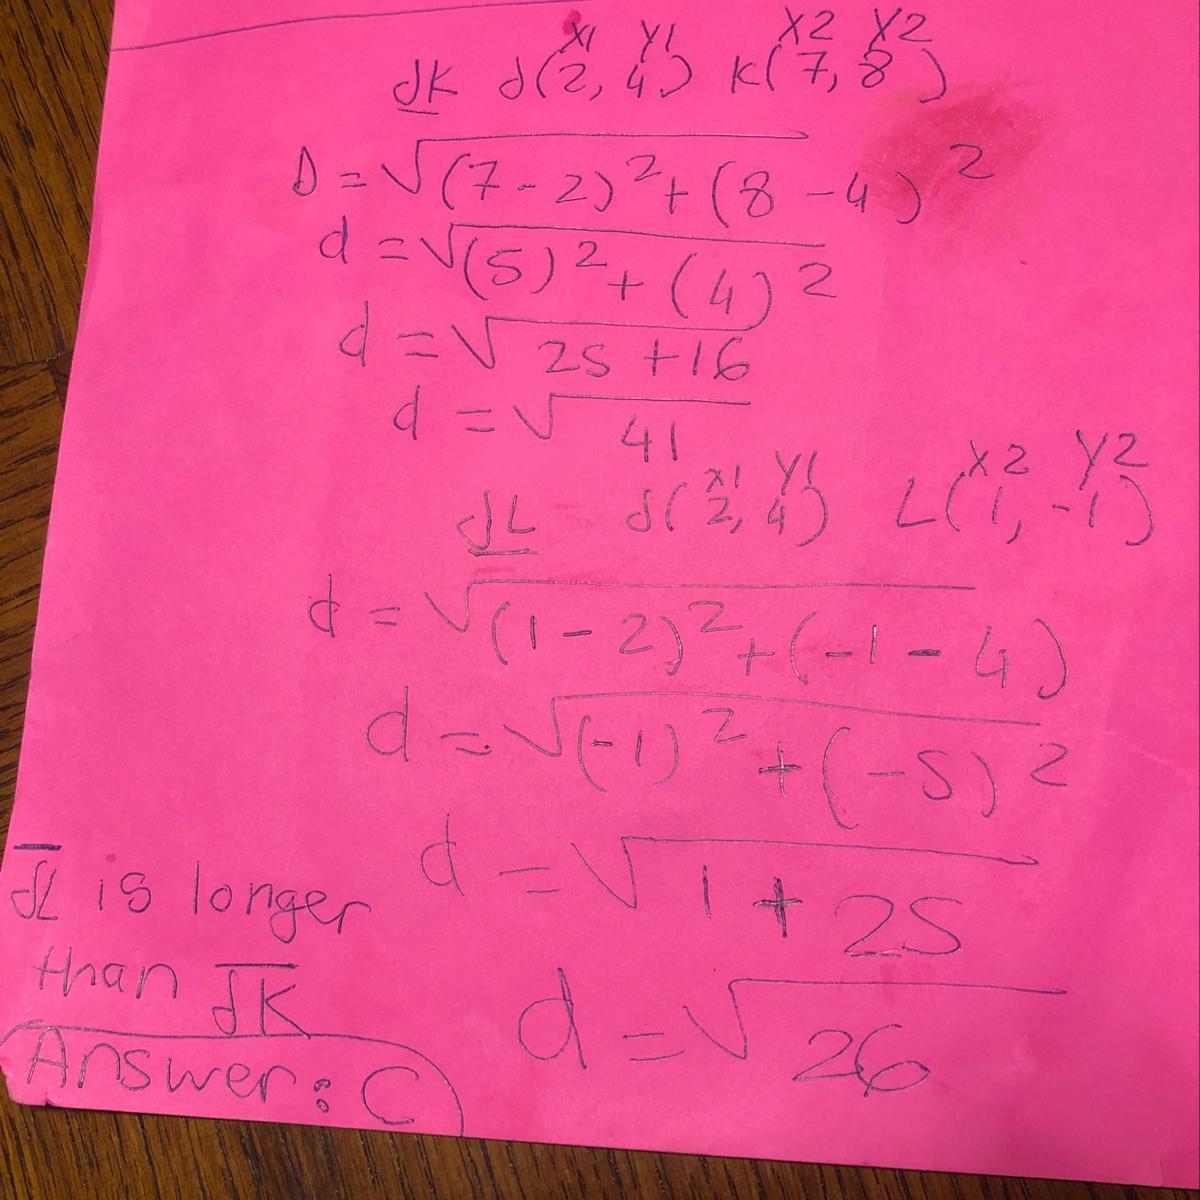 X1 Y1 X2 Y2
JK J(2, 4) K(7, 8)
D = √(7-2)²+(8-4)²
d = √(5)²+(4)²
d = √25+16
d = √41
X1 Y1 X2 Y2
JL J(2, 4) L(1, -1)
d = √(1-2)²+(-1-4)
d = √(-1)²+(-5)²
d = √1+25
d = √26
JL is longer
than JK
Answer: C